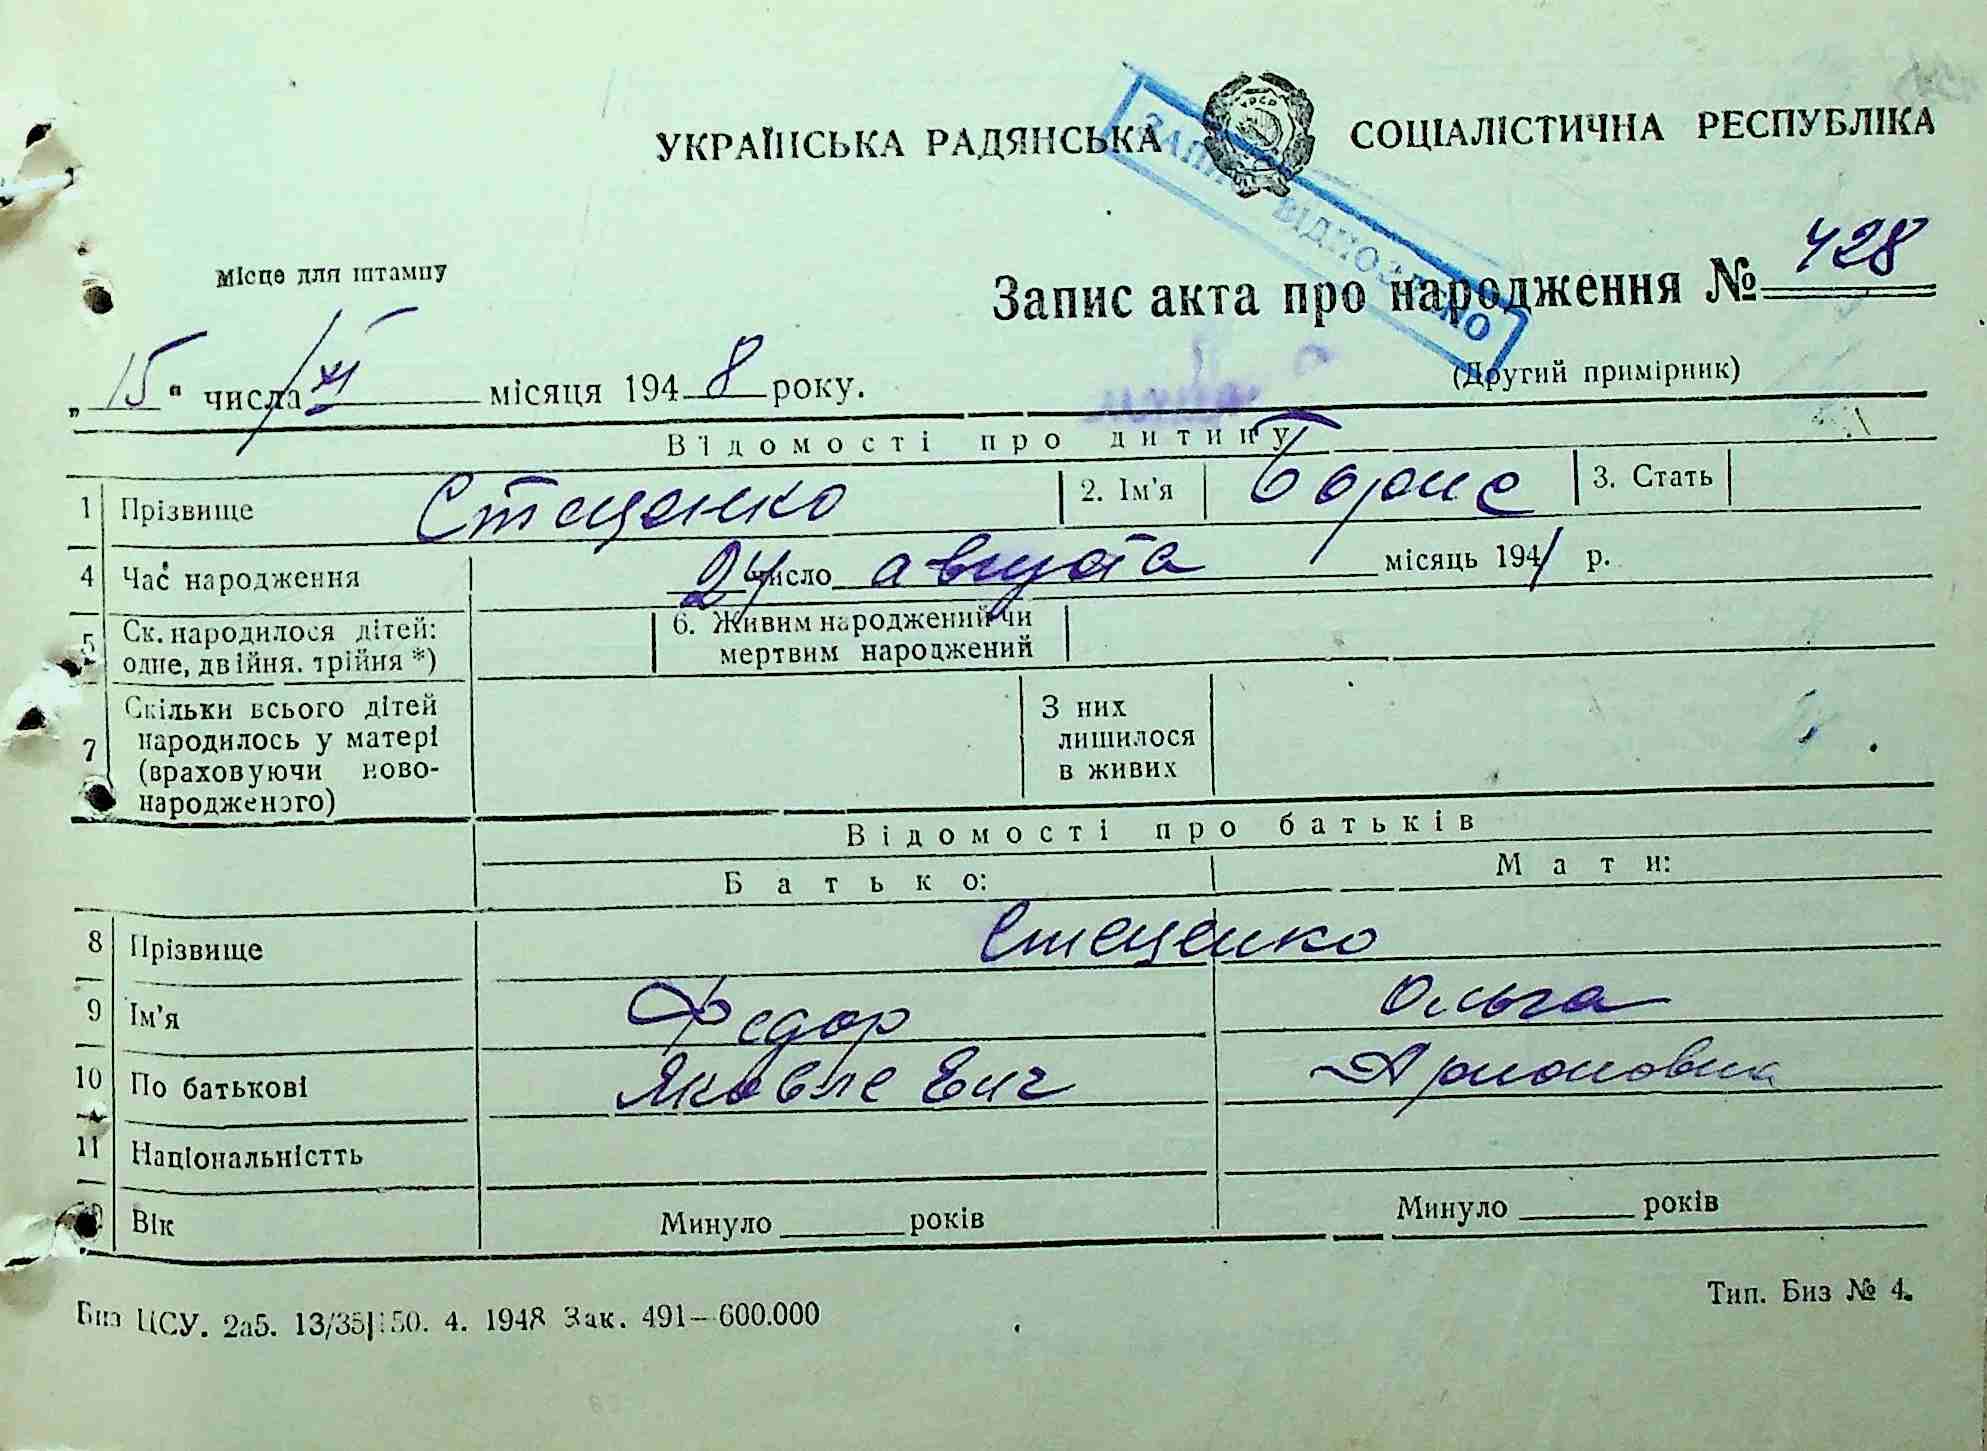 УКРАЇНСЬКА РАДЯНСЬКА СОЦІАЛІСТИЧНА РЕСПУБЛІКА
УРСР
ЗАПИС ВІДНОВЛЕНО
Місце для штампу
Запис акта про народження № 428
„15“ числа XI місяця 1948 року.
(Другий примірник)
Відомості про дитину
1 Прізвище Стеценко 2. Ім'я Борис 3. Стать
4 Час народження 24 число августа місяць 1941 р.
5 Ск. народилося дітей: одне, двійня. трійня *)
6. Живим народжений чи мертвим народжений
7 Скільки всього дітей народилось у матері (враховуючи ново-народженого)
З них лишилося в живих
Відомості про батьків
Батько: Мати:
8 Прізвище Стеценко
9 Ім'я Федор Ольга
10 По батькові Яковлевич
11 Національністть
Вік Минуло ____ років Минуло ____ років
Биз ЦСУ. 2а5. 13/35 150. 4. 1948 Зак. 491—600.000
Тип. Биз № 4.